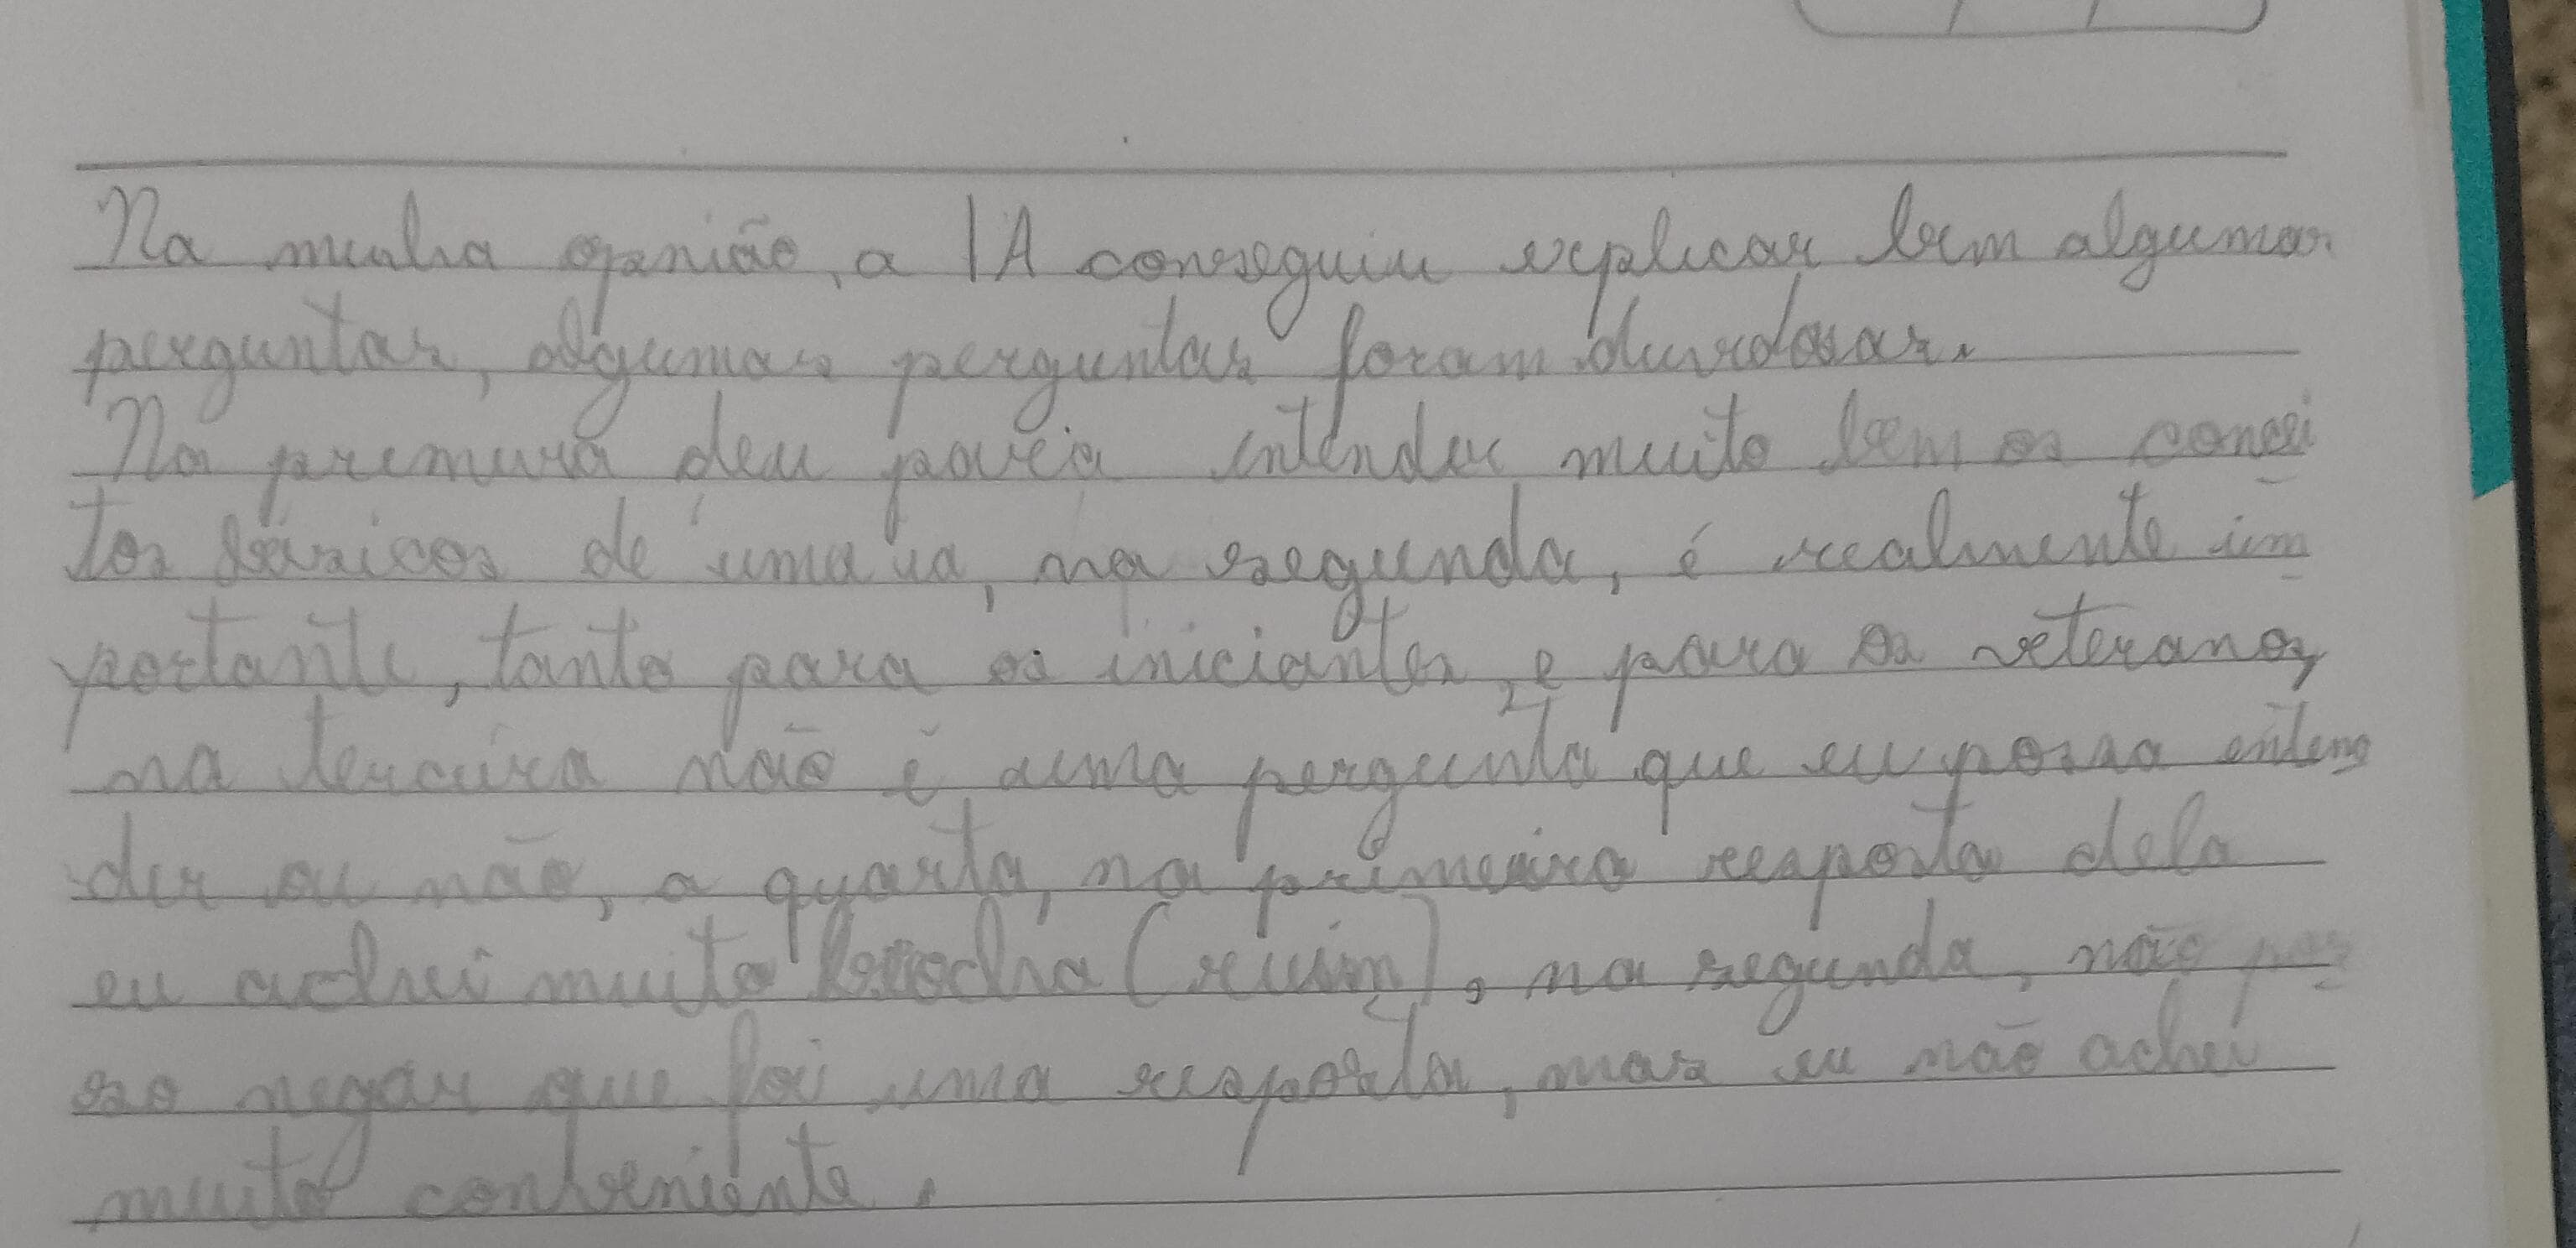 Na minha opinião, a IA conseguiu explicar bem algumas
perguntas, algumas perguntas foram duvidosas.
Na primeira deu para intender muito bem os concei
tos básicos de uma ia, na segunda, é realmente im
portante, tanto para os iniciantes, e para os veteranos,
na terceira não é uma pergunta que eu possa enten
der ou não, a quarta, na primeira resposta dela
eu achei muito (ruim), na segunda, não pos
so negar que foi uma resposta, mas eu não achei
muito conveniente.